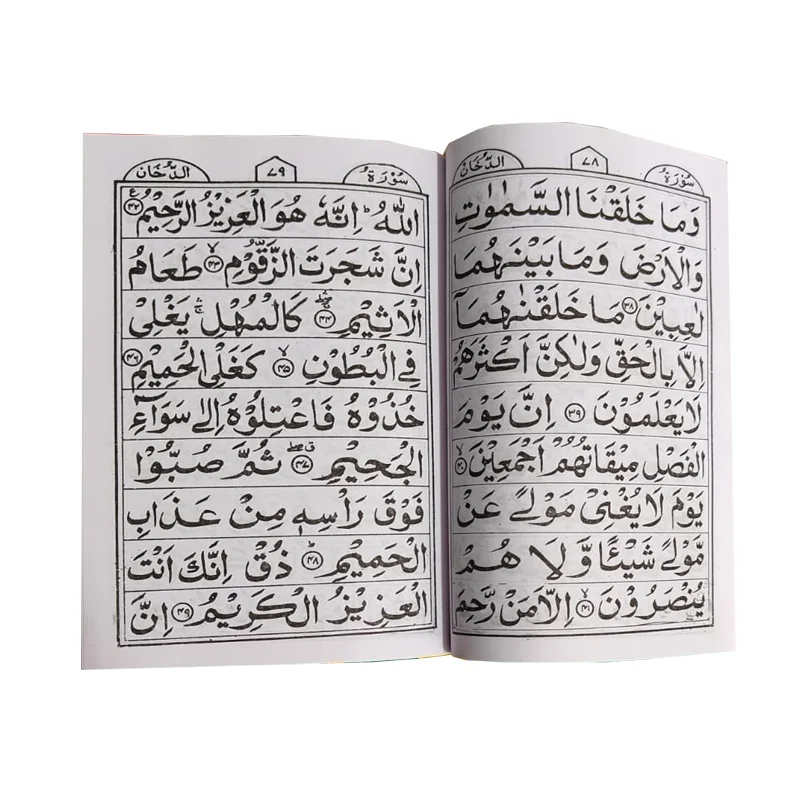 سُوْرَةُ ٧٨ الدُّخَانِ
وَمَا خَلَقْنَا السَّمٰوٰتِ
وَالْاَرْضَ وَمَا بَيْنَهُمَا
لٰعِبِيْنَ ۳۸ مَا خَلَقْنٰهُمَاۤ
اِلَّا بِالْحَقِّ وَلٰكِنَّ اَكْثَرَهُمْ
لَا يَعْلَمُوْنَ ۳۹ اِنَّ يَوْمَ
الْفَصْلِ مِيْقَاتُهُمْ اَجْمَعِيْنَ ۴۰ ۙ
يَوْمَ لَا يُغْنِيْ مَوْلًى عَنْ
مَّوْلًى شَيْئًا وَّلَا هُمْ
يُنْصَرُوْنَ ۴۱ ۙ اِلَّا مَنْ رَّحِمَ
سُوْرَةُ ٧٩ الدُّخَانِ
اللّٰهُ ؕ اِنَّهٗ هُوَ الْعَزِيْزُ الرَّحِيْمُ ۴۲ ع
اِنَّ شَجَرَتَ الزَّقُّوْمِ ۴۳ ۙ طَعَامُ
الْاَثِيْمِ ۴۴ ۛ كَالْمُهْلِ ۛ يَغْلِيْ
فِي الْبُطُوْنِ ۴۵ ۙ كَغَلْيِ الْحَمِيْمِ ۴۶
خُذُوْهُ فَاعْتِلُوْهُ اِلٰى سَوَآءِ
الْجَحِيْمِ ۴۷ ۖ ثُمَّ صُبُّوْا
فَوْقَ رَاْسِهٖ مِنْ عَذَابِ
الْحَمِيْمِ ۴۸ ؕ ذُقْ اِنَّكَ اَنْتَ
الْعَزِيْزُ الْكَرِيْمُ ۴۹ اِنَّ